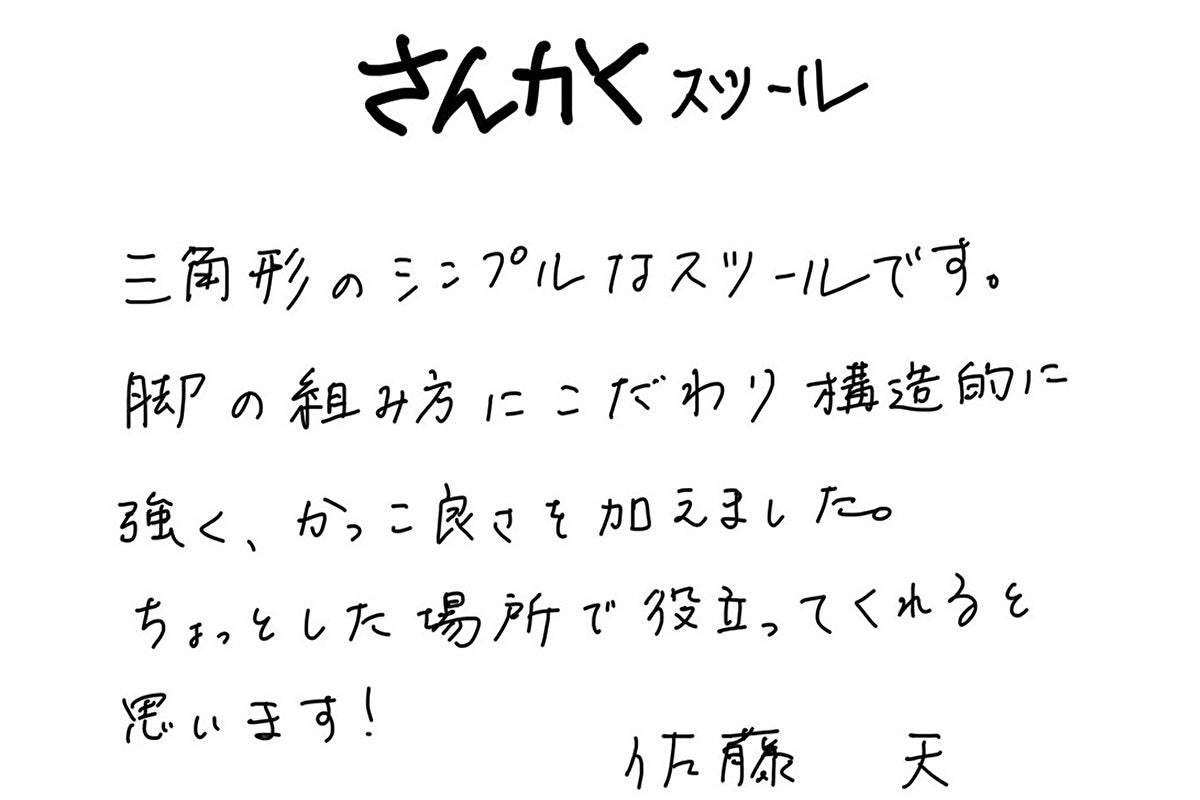 さんかくスツール
三角形のシンプルなスツールです。
脚の組み方にこだわり構造的に
強く、かっこ良さを加えました。
ちょっとした場所で役立ってくれると
思います!
佐藤 天